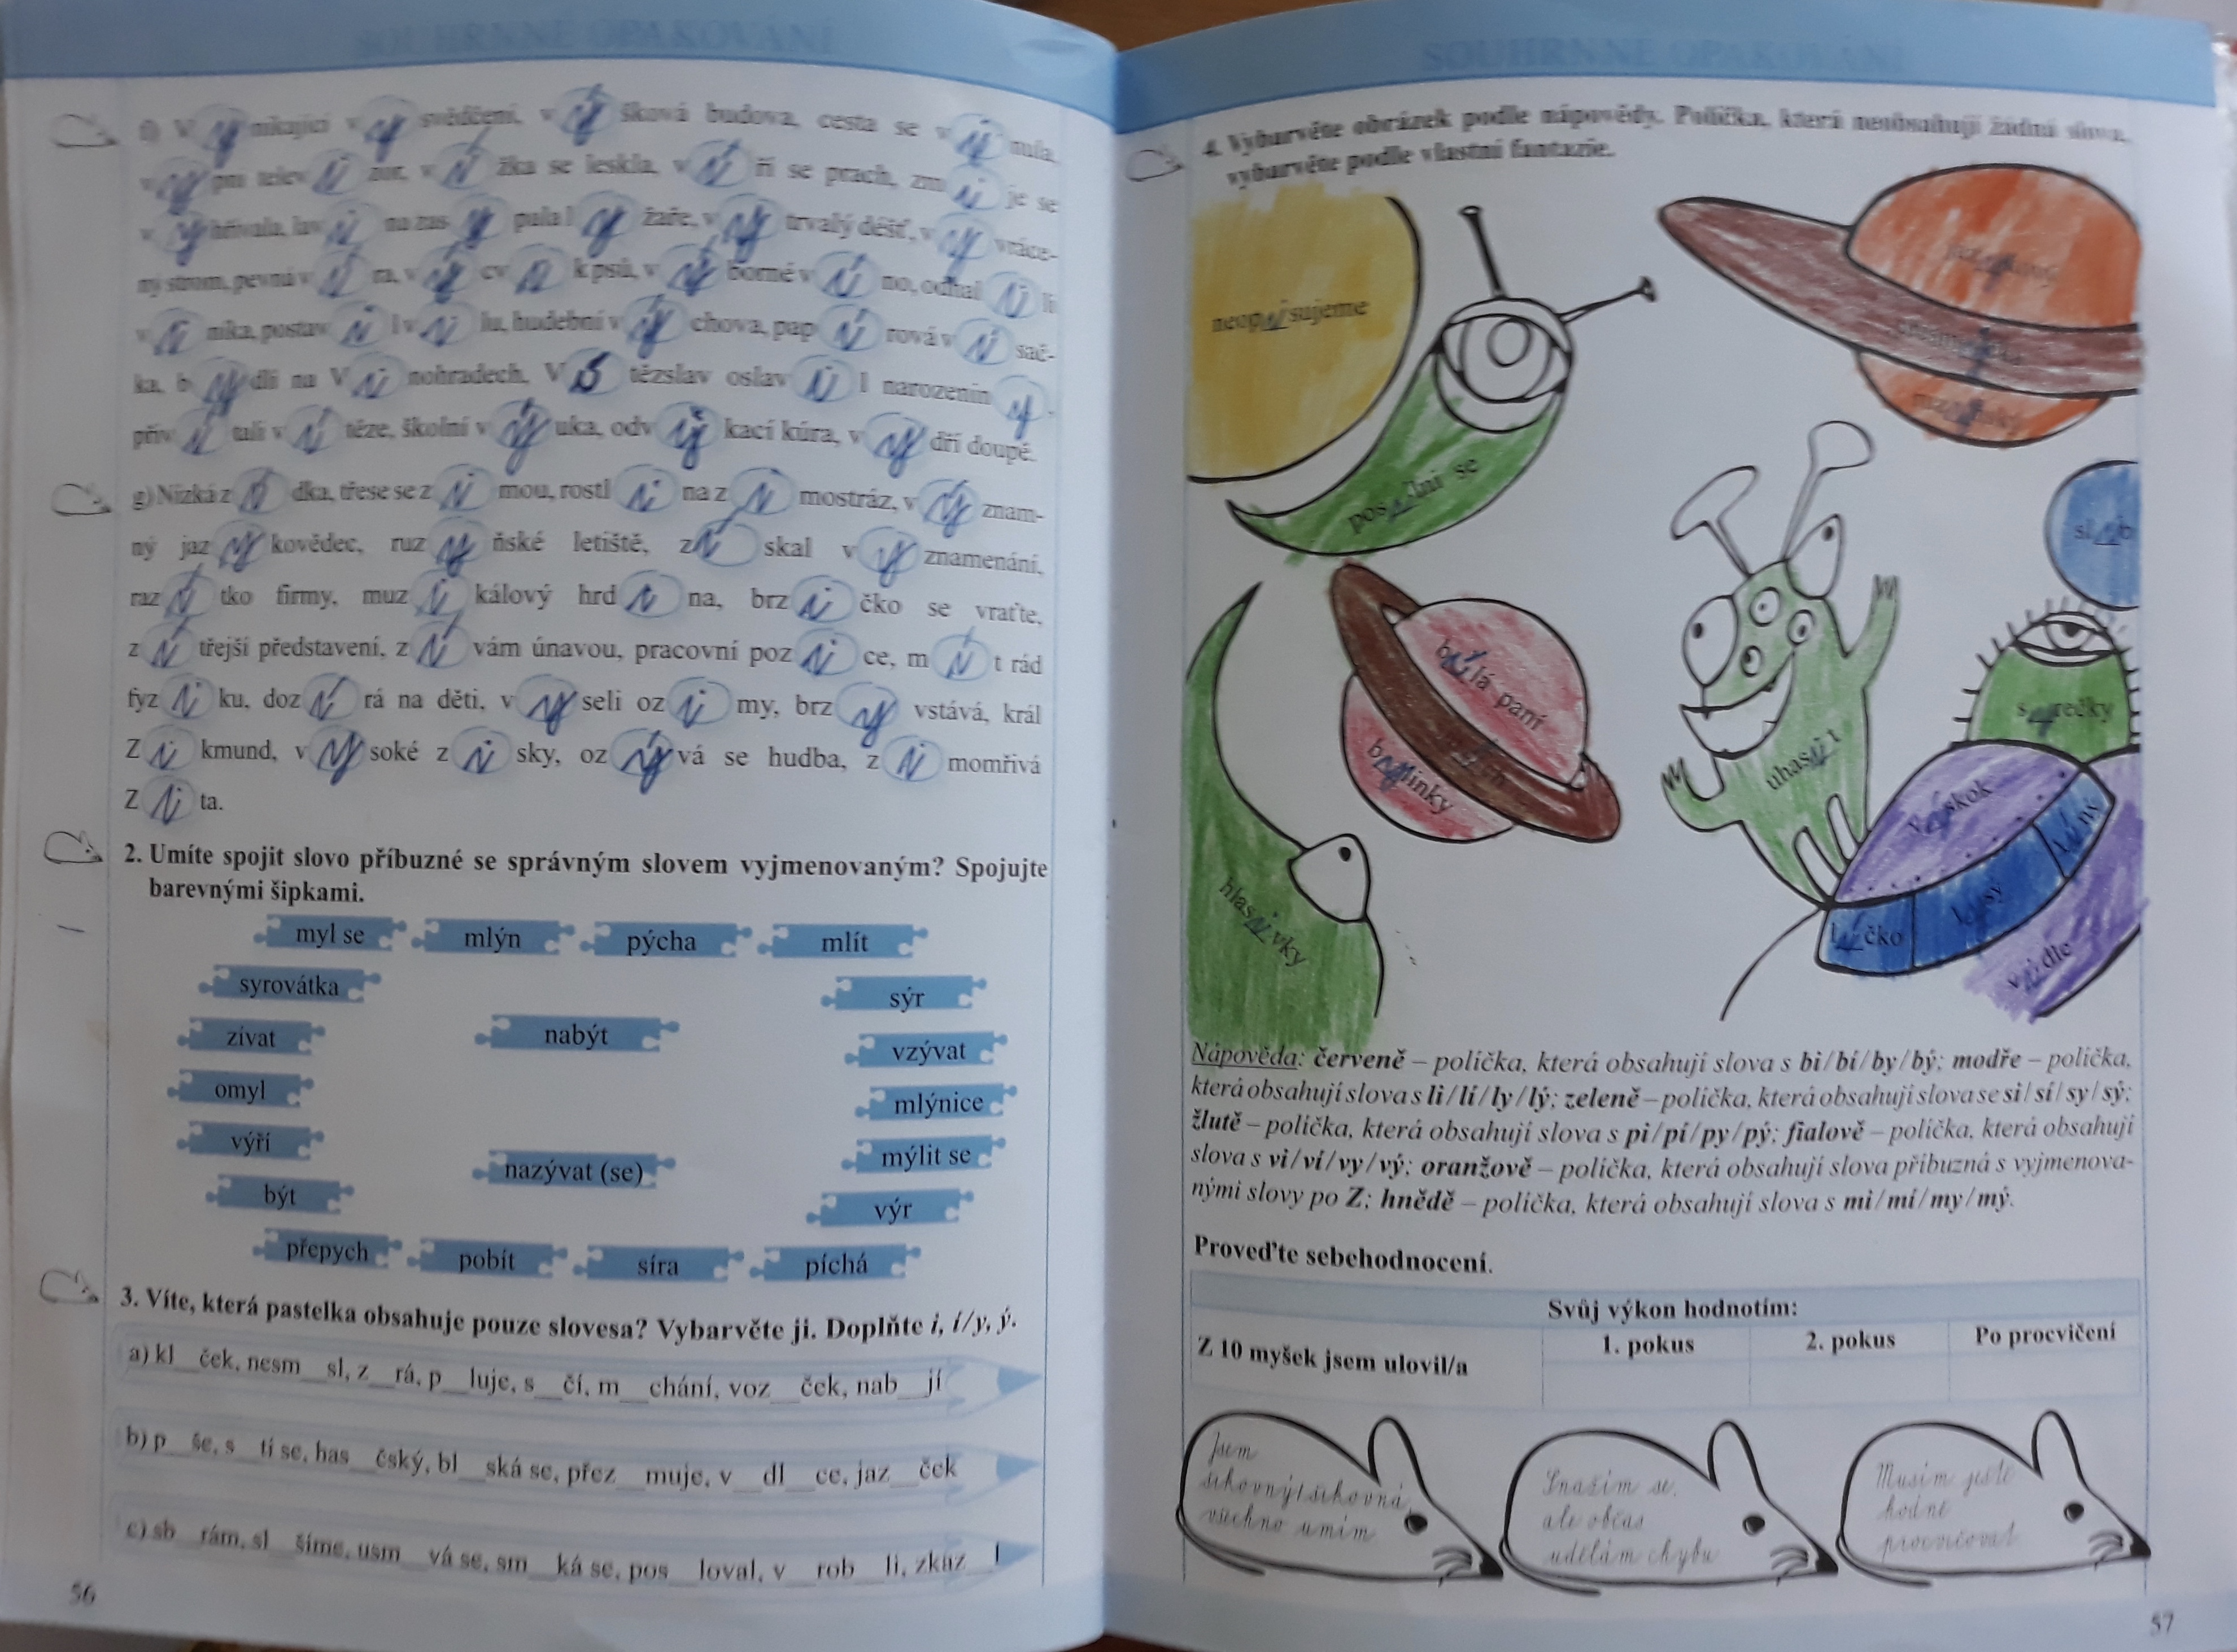 SOUHRNNÉ OPAKOVÁNÍ
f) Vynikající vysvědčení, výšková budova, cesta se vinula,
vypni televizor, vížka se leskla, víří se prach, zmije se
vyhřívala, lavina zasypala lyžaře, vytrvalý déšť, vyvráce-
ný strom, pevná víra, výcvik psů, výborné víno, odhalili
viníka, postavil vilu, hudební výchova, papírová visač-
ka, bydlí na Vinohradech, Vítězslav oslavil narozeniny.
přivítali vítěze, školní výuka, odvykací kúra, vydří doupě.
g) Nízká zídka, třese se zimou, rostlina zimostráz, význam-
ný jazykovědec, ruzyňské letiště, získal vyznamenání,
razítko firmy, muzikálový hrdina, brzičko se vraťte,
zítřejší představení, zívám únavou, pracovní pozice, mít rád
fyziku, dozírá na děti, vyseli ozimy, brzy vstává, král
Zikmund, vysoké zisky, ozývá se hudba, zimomřivá
Zita.
2. Umíte spojit slovo příbuzné se správným slovem vyjmenovaným? Spojujte
barevnými šipkami.
myl se mlýn pýcha mlít
syrovátka sýr
zívat nabýt vzývat
omyl mlýnice
výří nazývat (se) mýlit se
být výr
přepych pobít síra píchá
3. Víte, která pastelka obsahuje pouze slovesa? Vybarvěte ji. Doplňte i, í/y, ý.
a) kl__ček, nesm__sl, z__rá, p__luje, s__čí, m__chání, voz__ček, nab__jí
b) p__še, s__tí se, has__čský, bl__ská se, přez__muje, v__dl__ce, jaz__ček
c) sb__rám, sl__šíme, usm__vá se, sm__ká se, pos__loval, v__rob__li, zkaz__l
56
SOUHRNNÉ OPAKOVÁNÍ
4. Vybarvěte obrázek podle nápovědy. Políčka, která neobsahují žádná slova,
vybarvěte podle vlastní fantazie.
neopisujeme
posilni se
slib
bílá paní
bylinky
syrečky
uhasit
výskok
hlasivky
líčko
vidle
Nápověda: červeně – políčka, která obsahují slova s bi/bí/by/bý; modře – políčka,
která obsahují slova s li/lí/ly/lý; zeleně – políčka, která obsahují slova se si/sí/sy/sý;
žlutě – políčka, která obsahují slova s pi/pí/py/pý; fialově – políčka, která obsahují
slova s vi/ví/vy/vý; oranžově – políčka, která obsahují slova příbuzná s vyjmenova-
nými slovy po Z; hnědě – políčka, která obsahují slova s mi/mí/my/mý.
Proveďte sebehodnocení.
Svůj výkon hodnotím:
Z 10 myšek jsem ulovil/a 1. pokus 2. pokus Po procvičení
Jsem
šikovný/šikovná,
všechno umím
Snažím se,
ale občas
udělám chybu
Musím ještě
hodně
procvičovat
57